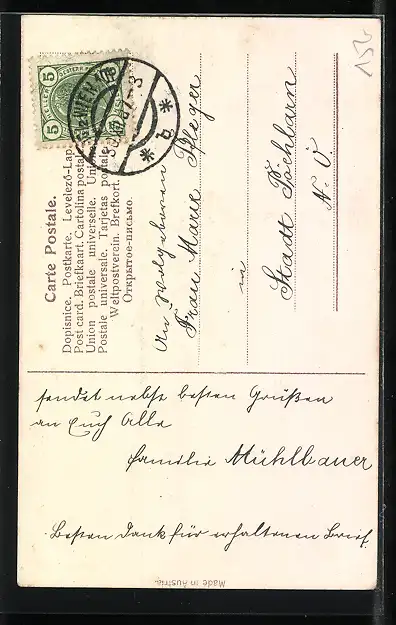 Carte Postale.
Dopisnice. Postkarte. Levelező-Lap.
Post card. Briefkaart. Cartolina postale
Union postale universelle. Union
Postale universale. Tarjetas postale
Weltpostverein. Brefkort.
Открытое-письмо.
5 5
WIEN
* b *
An Wolgeboren
Frau Marie Pfleger
in
Stadt Pöchlarn
N. Ö.
sendet nebst besten Grüßen
an Euch Alle
Familie Mühlbauer
Besten Dank für erhaltenen Brief.
Made in Austria.